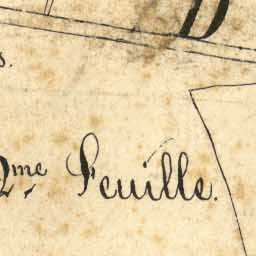 D
s.
2me Feuille.